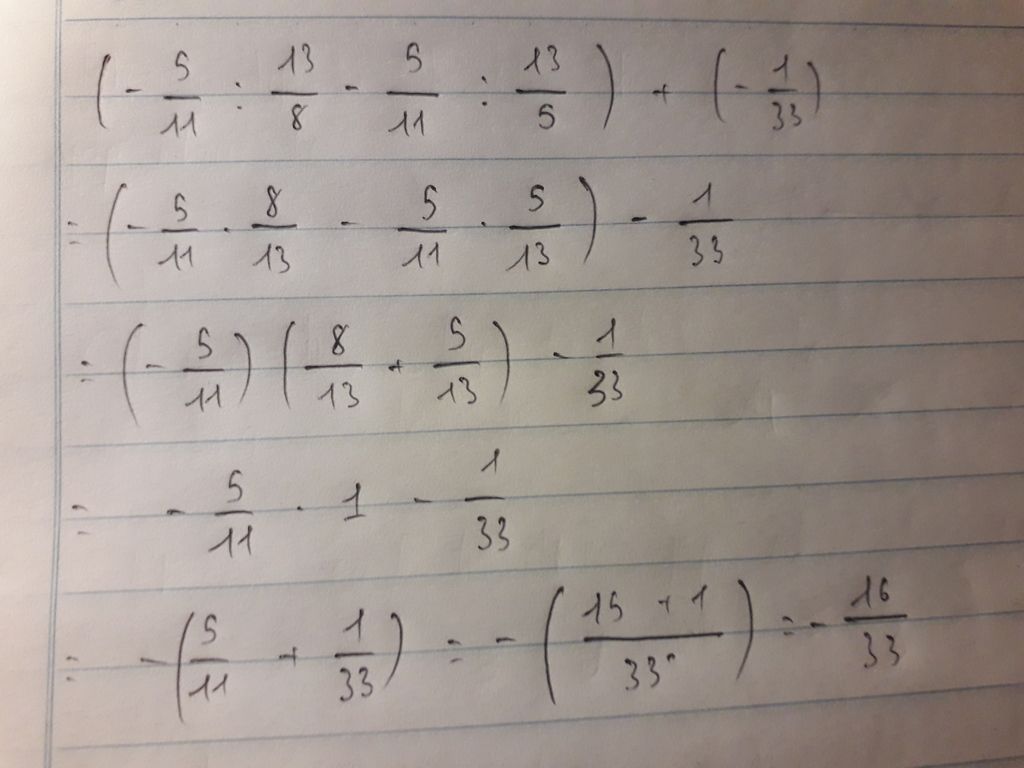 (- 5/11 : 13/8 - 5/11 : 13/5) + (- 1/33)
= (- 5/11 . 8/13 - 5/11 . 5/13) - 1/33
= (- 5/11) (8/13 + 5/13) - 1/33
= - 5/11 . 1 - 1/33
= - (5/11 + 1/33) = - ((15 + 1)/33) = - 16/33